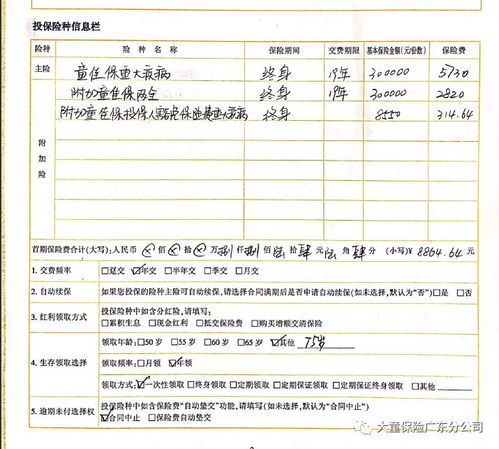 投保险种信息栏
险种 险种名称 保险期间 交费期限 基本保险金额(元/份数) 保险费
主险 童佳保重大疾病 终身 19年 300000 5730
附加险 附加童佳保两全 终身 19年 300000 2820
附加童佳保投保人豁免保险费重大疾病 终身 8550 314.64
首期保险费合计(大写):人民币 ⊗佰⊗拾⊗万捌仟捌佰陆拾肆元陆角肆分 (小写)¥ 8864.64 元
1. 交费频率 □趸交 ☑年交 □半年交 □季交 □月交
2. 自动续保 如果您投保的险种主险可自动续保,请选择合同满期后是否申请自动续保(如未选择,默认为“否”)□是 □否
3. 红利领取方式 投保险种中如含分红险,请填写:
□累积生息 □现金红利 □抵交保险费 □购买增额交清保险
4. 生存领取选择 领取年龄:□50岁 □55岁 □60岁 □65岁 ☑其他 75岁
领取频率:□月领 ☑年领
领取方式:☑一次性领取 □终身领取 □定期领取 □定期保证领取 □定期保证终身领取 □其他
5. 逾期未付选择权 投保险种中如含保险费“自动垫交”功能,请填写(如未选择,默认为“合同中止”)
☑合同中止 □保险费自动垫交
大童保险广东分公司